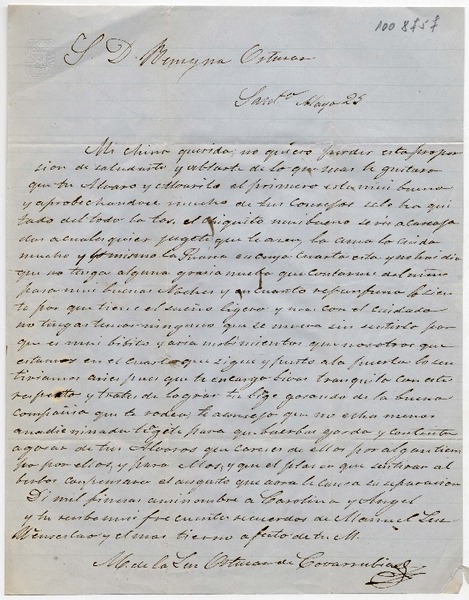 1008757
S. D. Benigna Ortuzar
Sant.o Mayo 25
Mi china querida; no quiero perder esta propor
sion de saludarte y ablarte de lo que mas te gustara
que tu Alvaro y Maurilo el primero esta mui bueno
y aprobechandose mucho de tus consejos se le ha qui
tado del todo la tos, el chiquito mui bueno se rie a carcaja
das a cualesquier jugete que le asen, la ama lo cuida
mucho y lo mismo la Juana en cuyo cuarto esta y no hai dia
que no tenga alguna grasia nueba que contarme del niño
pasa mui buenas noches y en cuanto refunfuna lo sien
te por que tiene el sueño ligero y mas con el cuidado
no tengas temor ninguno que se mueva sin sentirlo por
que es mui bibito y aria mobimientos que nosotros que
estamos en el cuarto que sigue y junto a la puerta lo sen
tiriamos asi es pues que te encargo bivas tranquila con este
respecto y trates de lograr tu biaje gosando de la buena
compañia que te rodea; te aconsejo que no eches menos
a nadie ni nada tu para que buelbas gorda y contenta
a gosar de tus Alvaros que careses de ellos por algun tiem
po por ellos, y para ellos, y que el plaser que sentiras al
berlos conpensara el disgusto que aora le causa su separasion
Di mil finesas a mi nombre a Carolina y Angel
y tu resibe mui frecuentes recuerdos de Manuel Luz
Wenseslao y el mas tierno afecto de tu M.
M. de la Luz Ortuzar de Covarrubias